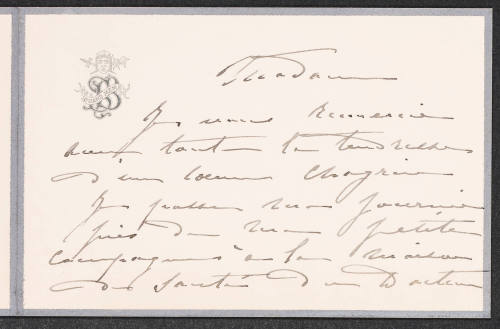 Madame
Je vous remercie
avec toute la tendresse
d'un coeur chagrin
Je passe mes journées
près de ma petite
compagne à la maison
de santé du Docteur